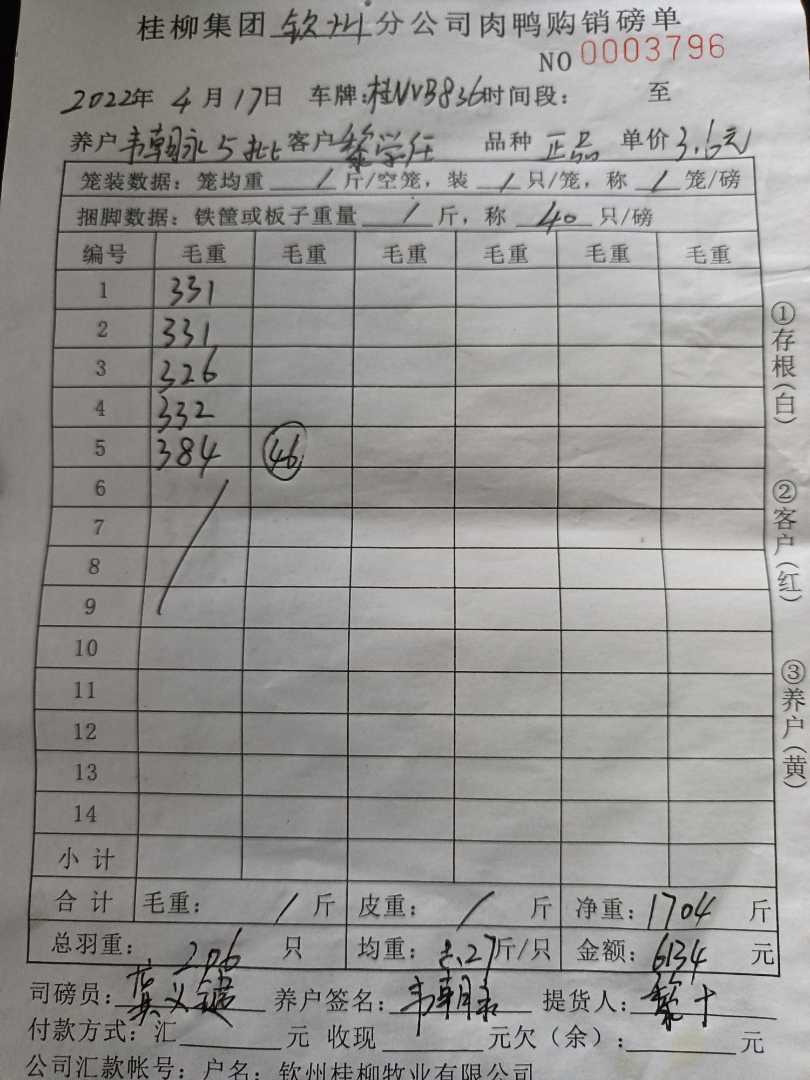 桂柳集团 钦州 分公司肉鸭购销磅单
NO 0003796
2022年 4月17日 车牌:桂NVB836 时间段: 至
养户 韦朝永5批 客户 黎学任 品种 正品 单价 3.6元
笼装数据:笼均重 / 斤/空笼,装 / 只/笼,称 / 笼/磅
捆脚数据:铁筐或板子重量 / 斤,称 40 只/磅
编号 毛重 毛重 毛重 毛重 毛重 毛重
1 331
2 331
3 326
4 332
5 384 46
6
7
8
9
10
11
12
13
14
小计
合计 毛重: / 斤 皮重: / 斤 净重:1704 斤
总羽重: 206 只 均重: 8.27斤/只 金额:6134 元
司磅员: 养户签名:韦朝永 提货人:黎十
付款方式:汇 元 收现 元欠(余): 元
公司汇款帐号:户名:钦州桂柳牧业有限公司
①存根(白)
②客户(红)
③养户(黄)